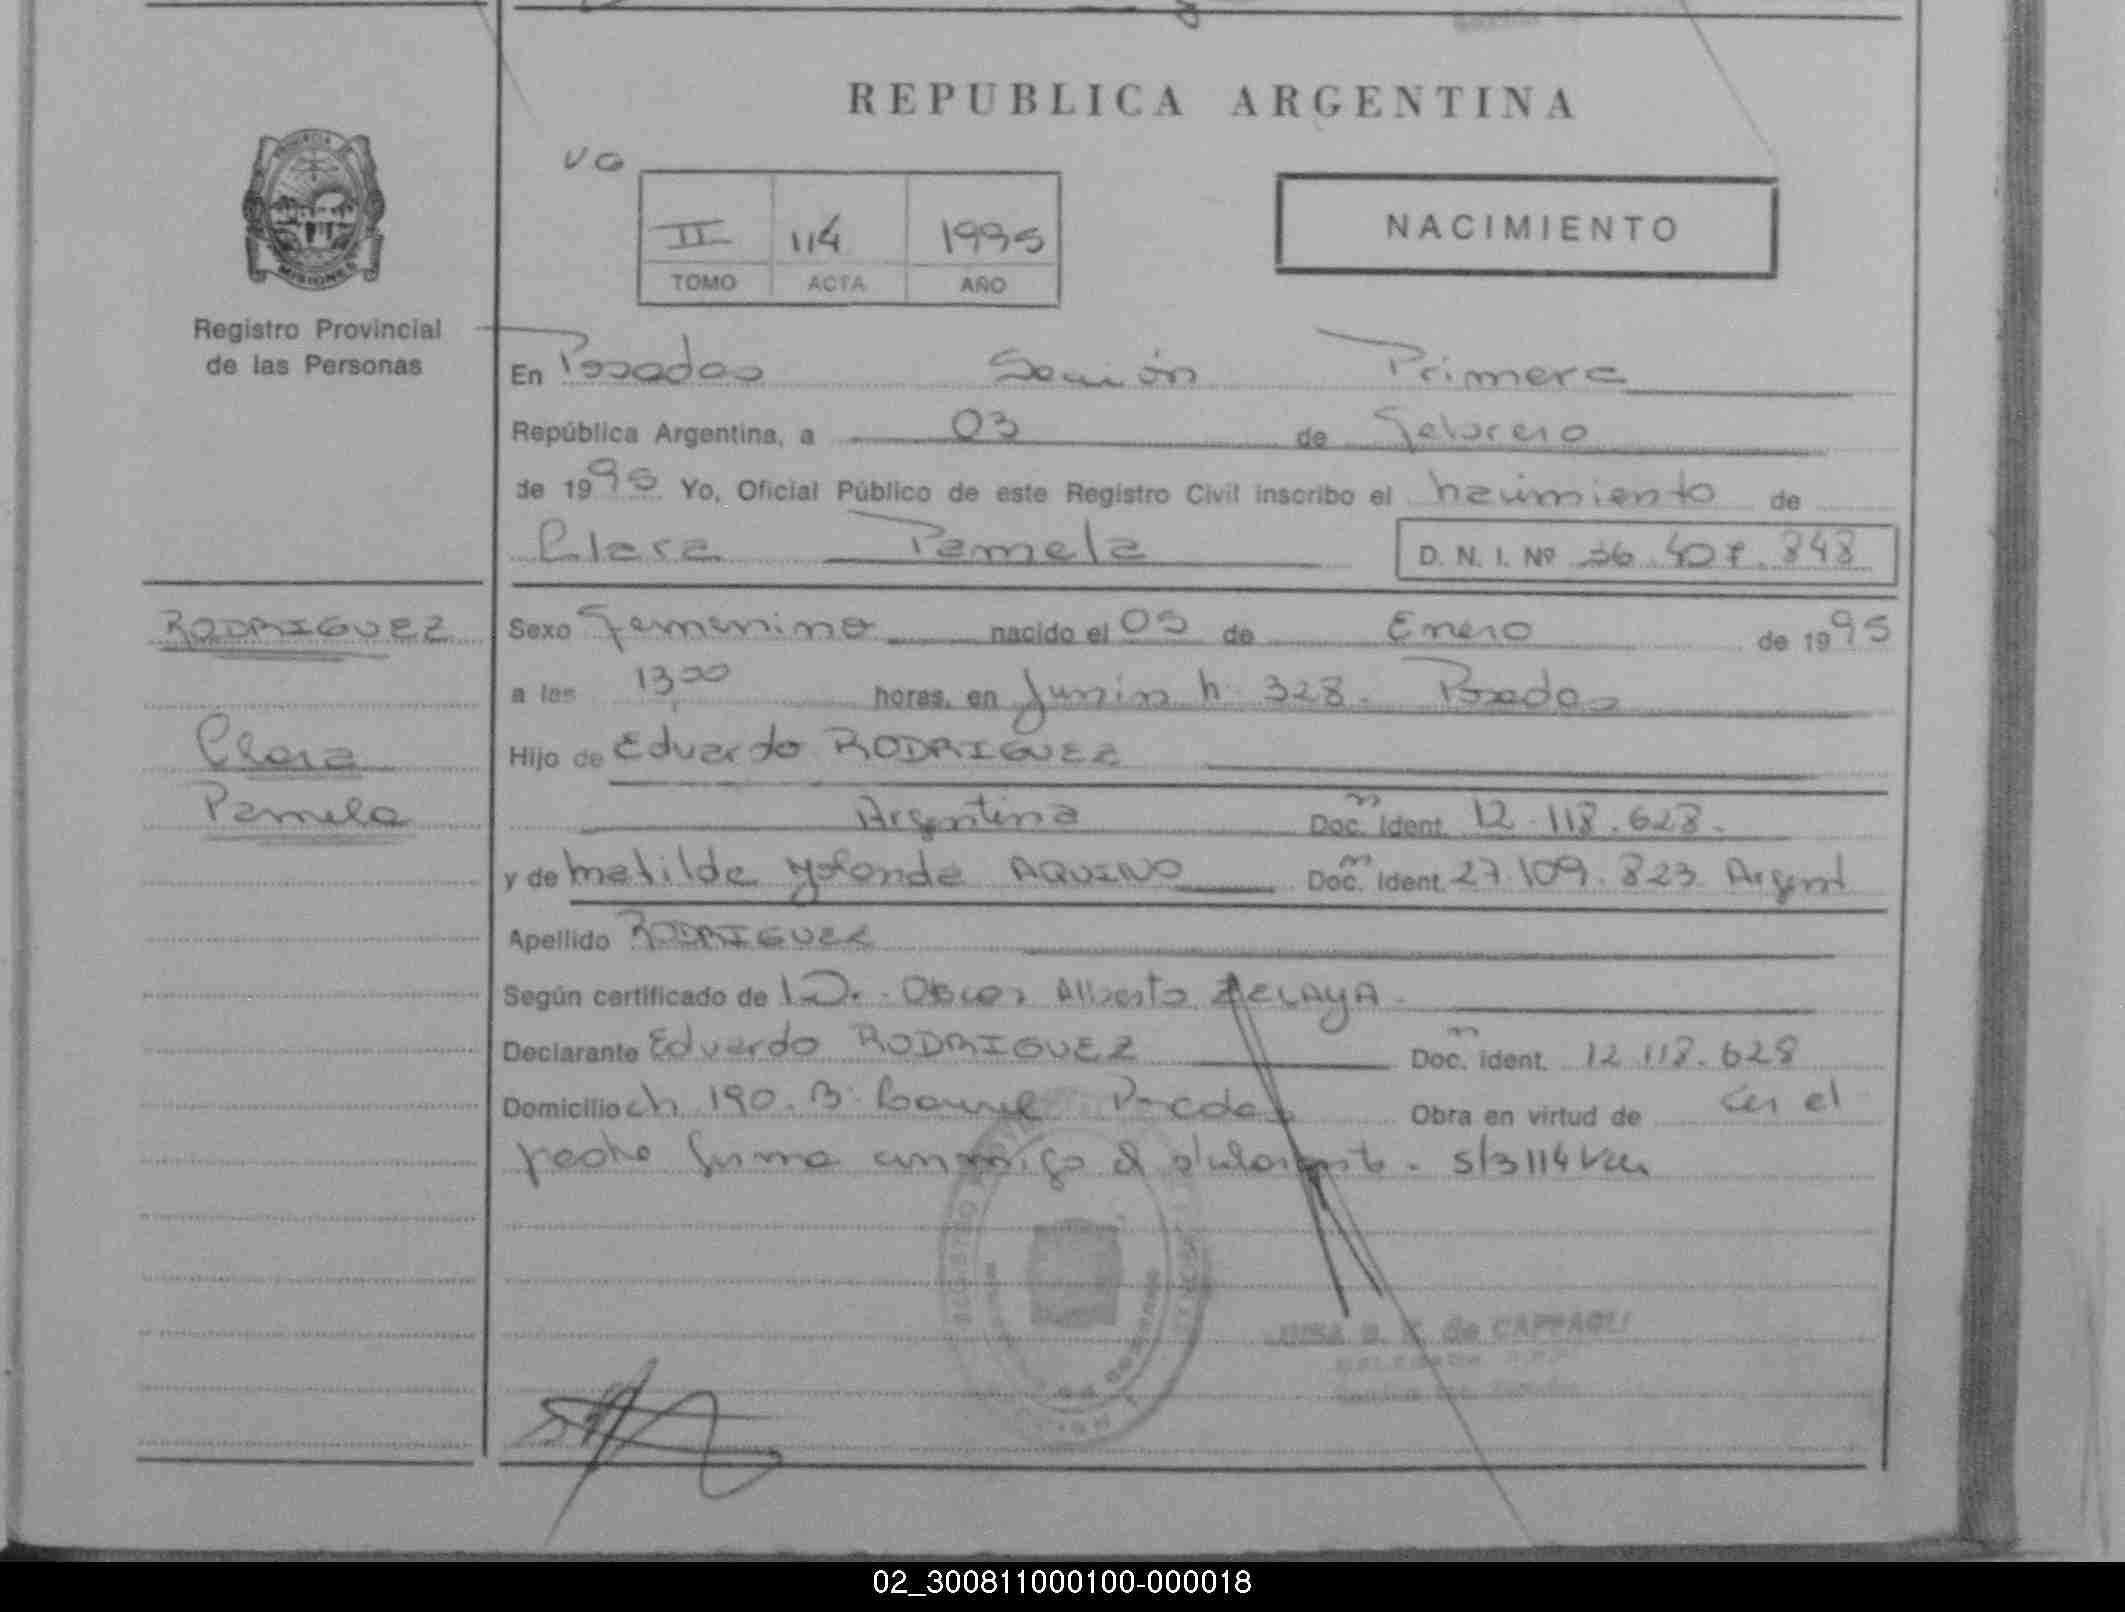 REPUBLICA ARGENTINA
PROVINCIA
MISIONES
Registro Provincial
de las Personas
VG
II 114 1995
TOMO ACTA AÑO
NACIMIENTO
En Posadas Sección Primera
República Argentina, a 03 de Febrero
de 1995 Yo, Oficial Público de este Registro Civil inscribo el nacimiento de
Clara Pamela D. N. I. Nº 36.407.848
RODRIGUEZ
Clara
Pamela
Sexo Femenino nacido el 05 de Enero de 1995
a las 13,00 horas, en Junin n. 328. Posadas
Hijo de Eduardo RODRIGUEZ
Argentina Doc. Ident. m 12.118.628.
y de Matilde Yolanda AQUINO Doc. Ident. m 27.109.823 Argent
Apellido RODRIGUEZ
Según certificado de Dr. Oscar Alberto ZELAYA
Declarante Eduardo RODRIGUEZ Doc. Ident. m 12.118.628
Domicilio ch 190. B. Posadas Obra en virtud de ser el
padre firma conmigo el s/3114
de CAPPAGLI
02_300811000100-000018